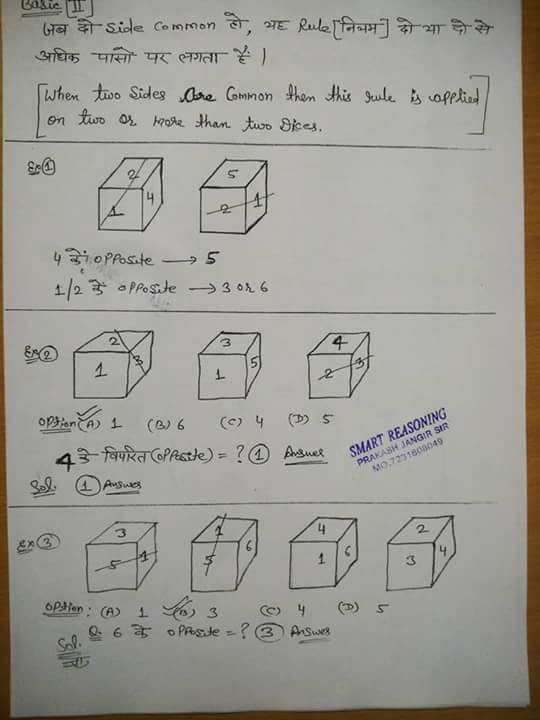 Basic [II]
जब दो Side Common हो, यह Rule [नियम] दो या दो से
अधिक पासों पर लगता है ।
[When two Sides are Common then this rule is applied
on two or more than two Dices.]
Ex ①
2 1 4
5 2 1
4 के opposite → 5
1/2 के opposite → 3 or 6
Ex ②
2 1 3
3 1 5
4 2 3
Option (A) 1 (B) 6 (C) 4 (D) 5
4 के विपरित (opposite) = ? ① Answer
Sol. ① Answer
SMART REASONING
PRAKASH JANGIR SIR
Ex ③
3 5 1
1 5 6
4 1 6
2 3 4
Option : (A) 1 (B) 3 (C) 4 (D) 5
Q. 6 के opposite = ? ③ Answer
Sol.